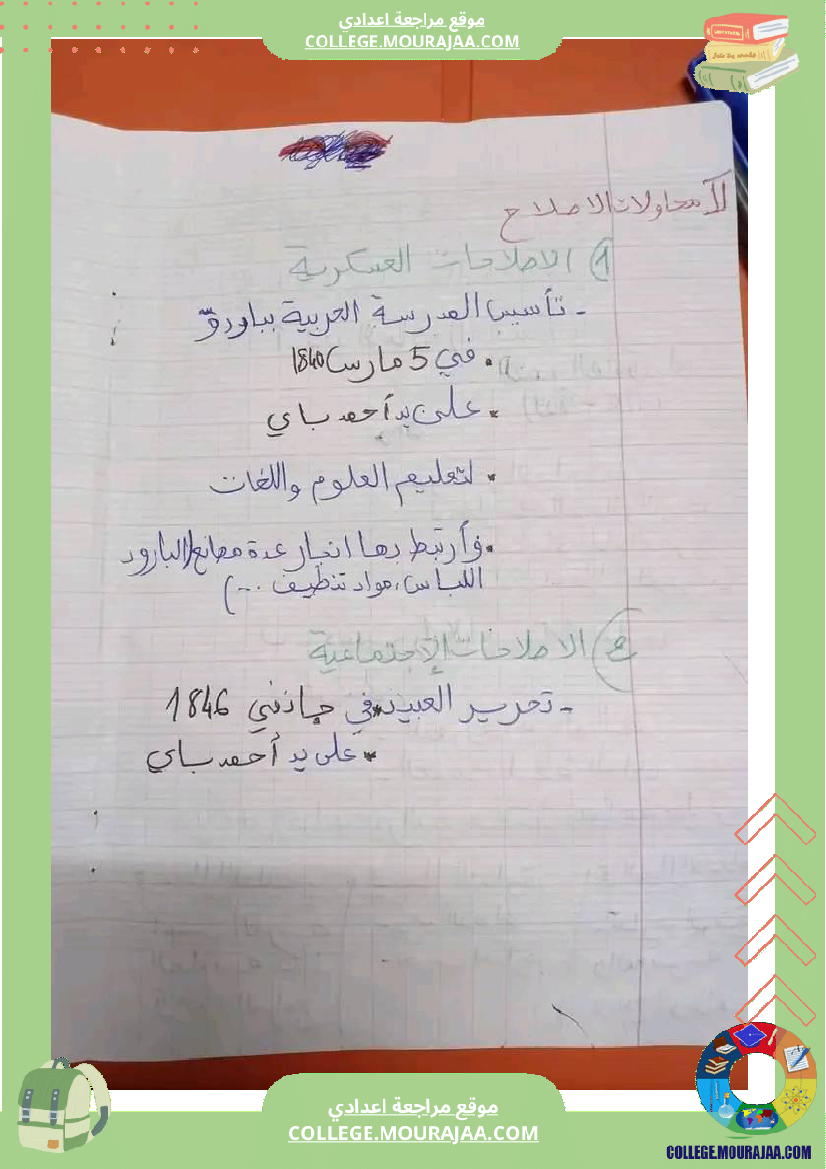 موقع مراجعة اعدادي
COLLEGE.MOURAJAA.COM
II محاولات الاصلاح
1) الاصلاحات العسكرية
- تأسيس المدرسة الحربية بباردو
• في 5 مارس 1840
* على يد أحمد باي
* لتعليم العلوم واللغات
• وأرتبط بها انجاز عدة مصانع (البارود
اللباس، مواد تنظيف ...)
2) الاصلاحات الإجتماعية
- تحرير العبيد * في جانفي 1846
* على يد أحمد باي
موقع مراجعة اعدادي
COLLEGE.MOURAJAA.COM
COLLEGE.MOURAJAA.COM